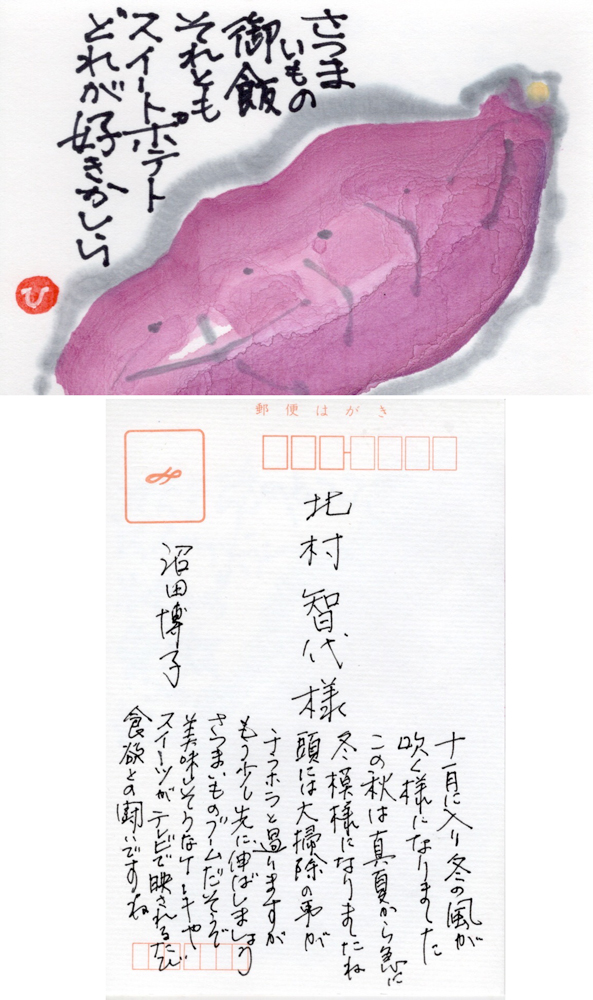 さつま
いもの
御飯
それとも
スイートポテト
どれが好きかしら
ひ
郵便はがき
北村智代様
沼田博子
十一月に入り冬の風が
吹く様になりました
この秋は真夏から急に
冬模様になりましたね
頭には大掃除の事が
チラホラと過りますが
もう少し先に伸ばしましょう
さつまいものブームだそうで
美味しそうなケーキや
スイーツがテレビで映されるたび
食欲との闘いですね